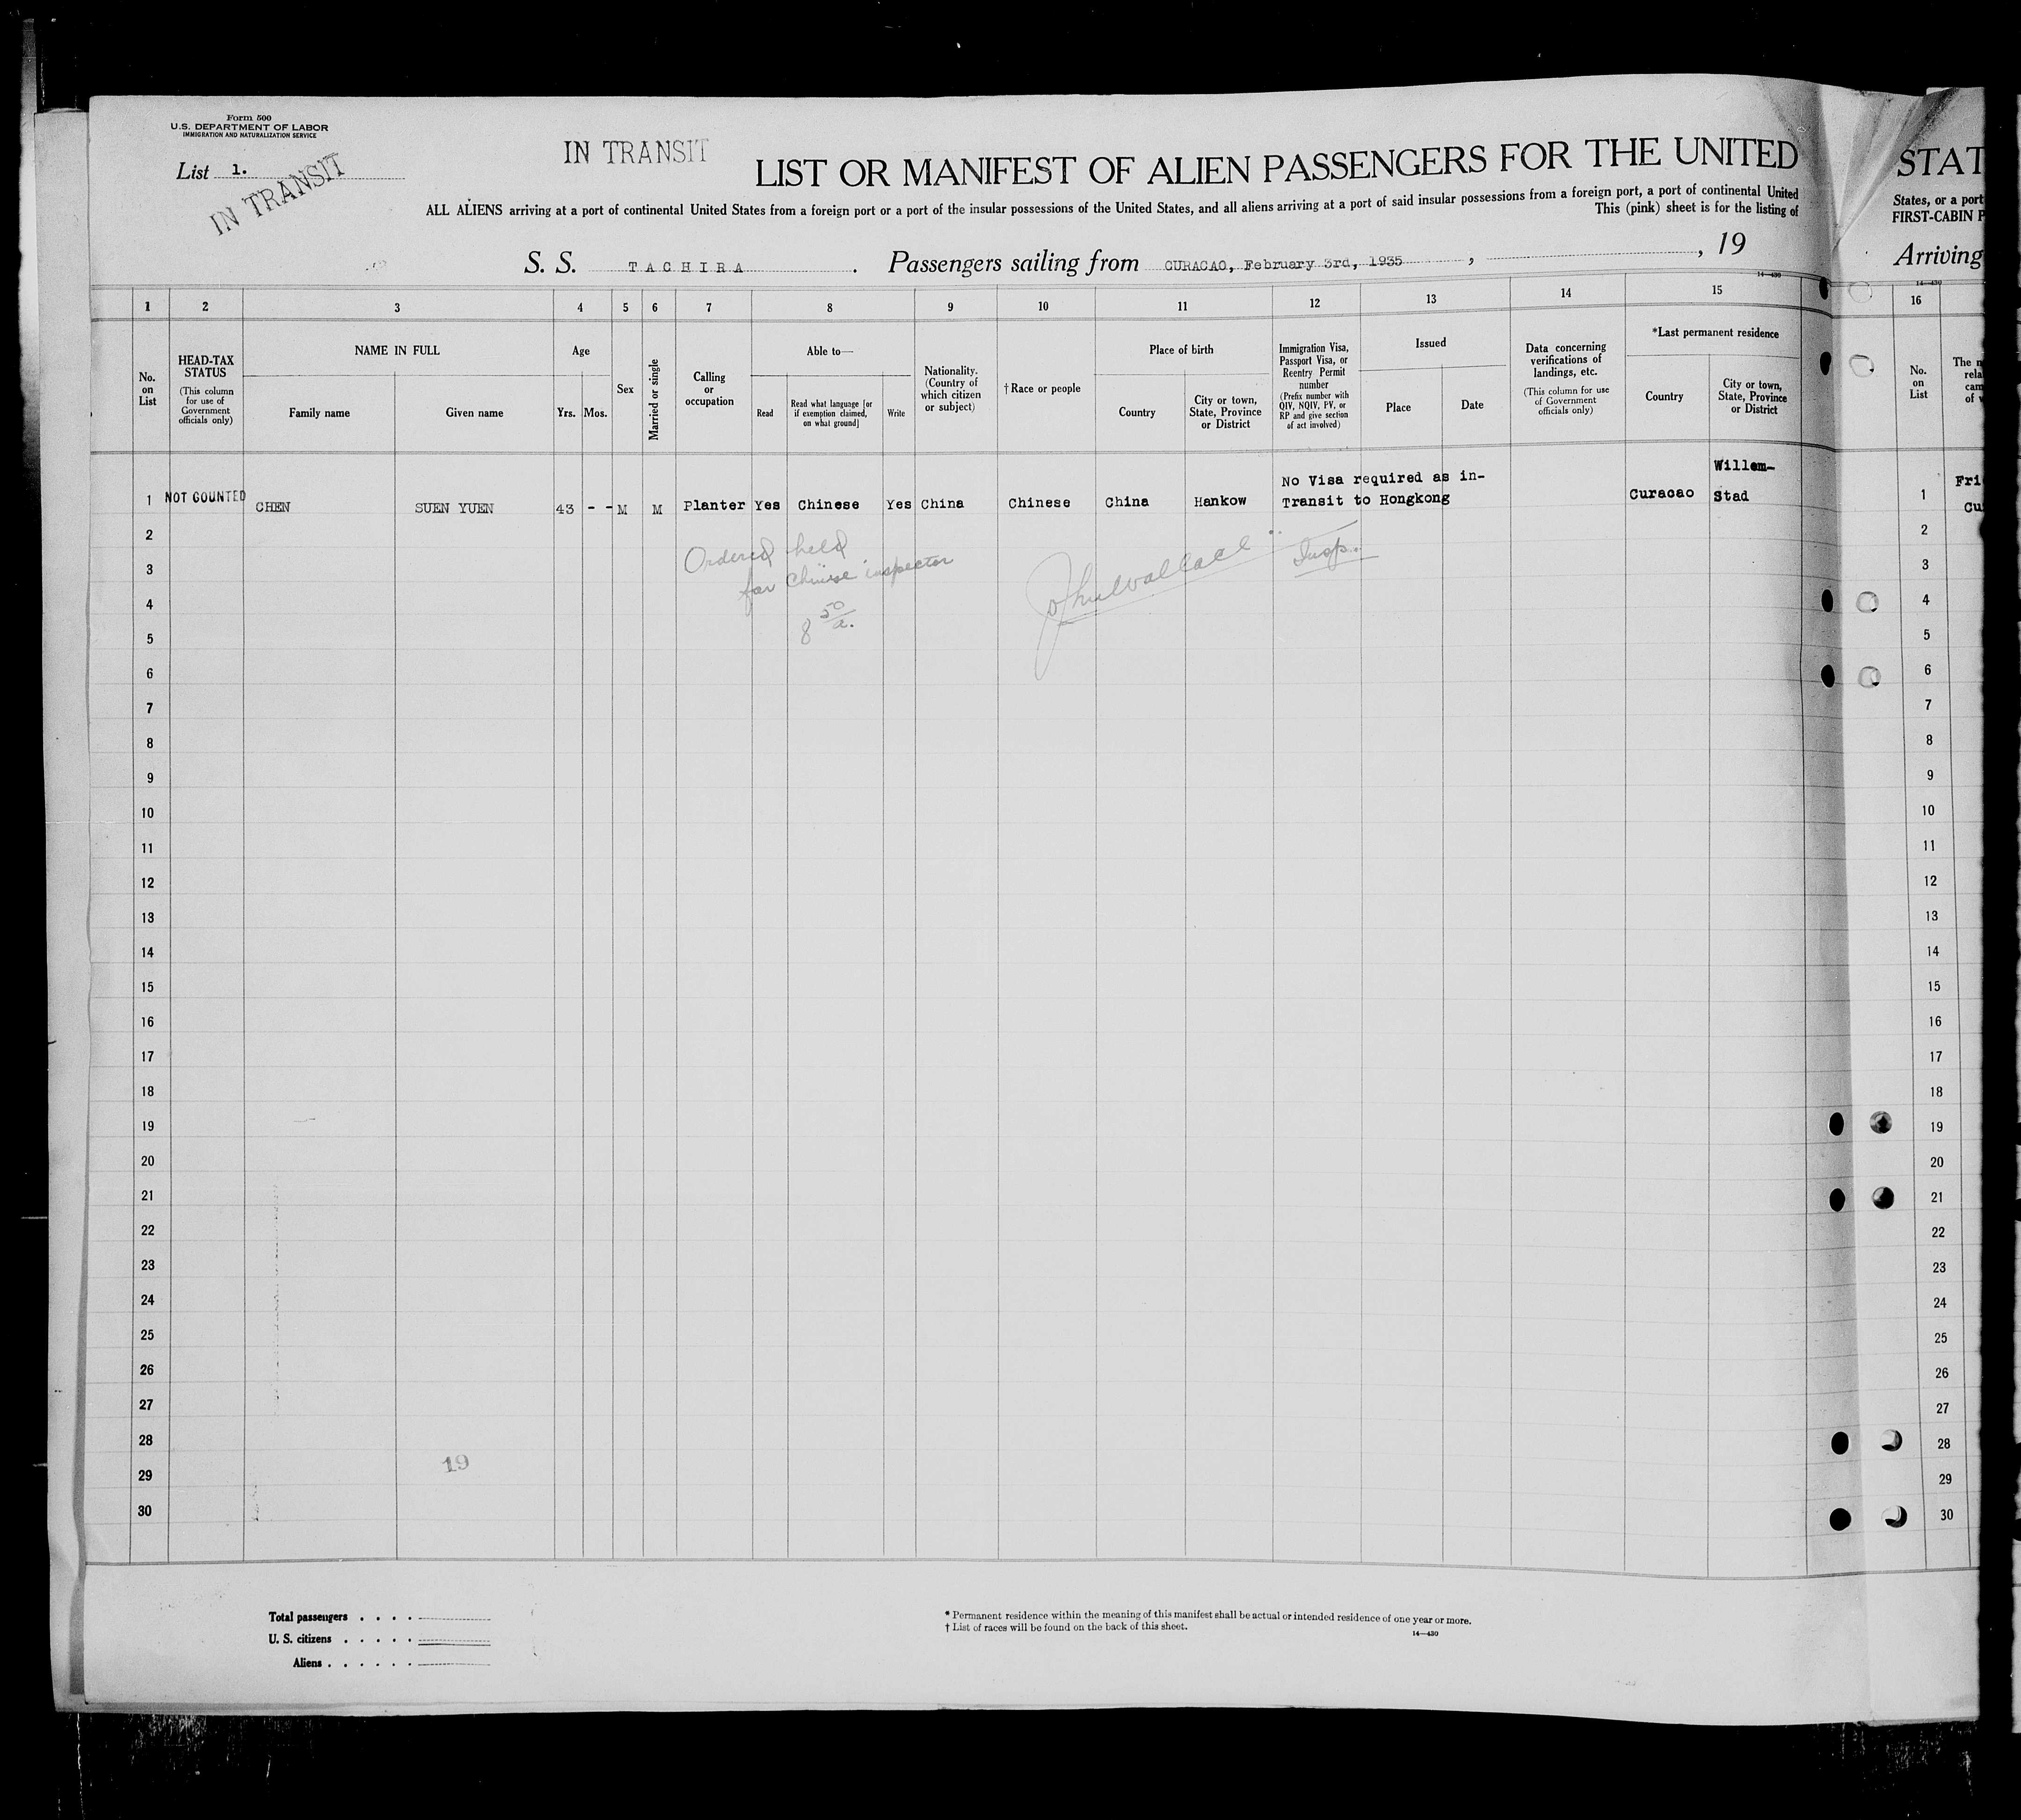 Form 500
U.S. DEPARTMENT OF LABOR
IMMIGRATION AND NATURALIZATION SERVICE
List 1.
IN TRANSIT
IN TRANSIT
LIST OR MANIFEST OF ALIEN PASSENGERS FOR THE UNITED
ALL ALIENS arriving at a port of continental United States from a foreign port or a port of the insular possessions of the United States, and all aliens arriving at a port of said insular possessions from a foreign port, a port of continental United
This (pink) sheet is for the listing of
S. S. TACHIRA . Passengers sailing from CURACAO, February 3rd, 1935 , , 19
14—430
1 2 3 4 5 6 7 8 9 10 11 12 13 14 15
No. on List
HEAD-TAX STATUS
(This column for use of Government officials only)
NAME IN FULL
Family name
Given name
Age
Yrs. Mos.
Sex
Married or single
Calling or occupation
Able to—
Read
Read what language [or if exemption claimed, on what ground]
Write
Nationality. (Country of which citizen or subject)
†Race or people
Place of birth
Country
City or town, State, Province or District
Immigration Visa, Passport Visa, or Reentry Permit number
(Prefix number with QIV, NQIV, PV, or RP and give section of act involved)
Issued
Place
Date
Data concerning verifications of landings, etc.
(This column for use of Government officials only)
*Last permanent residence
Country
City or town, State, Province or District
1 NOT COUNTED CHEN SUEN YUEN 43 - - M M Planter Yes Chinese Yes China Chinese China Hankow No Visa required as in-Transit to Hongkong Curacao Willem-Stad
Ordered held
for Chinese inspector
8 50/a.
Insp.
2
3
4
5
6
7
8
9
10
11
12
13
14
15
16
17
18
19
20
21
22
23
24
25
26
27
28
29
30
19
Total passengers . . . .
U. S. citizens . . . . .
Aliens . . . . . .
* Permanent residence within the meaning of this manifest shall be actual or intended residence of one year or more.
† List of races will be found on the back of this sheet.
14—430
STAT
States, or a port
FIRST-CABIN P
Arriving
14—430
16
No. on List
The n
rela
cam
of w
1 Fri
Cu
2
3
4
5
6
7
8
9
10
11
12
13
14
15
16
17
18
19
20
21
22
23
24
25
26
27
28
29
30